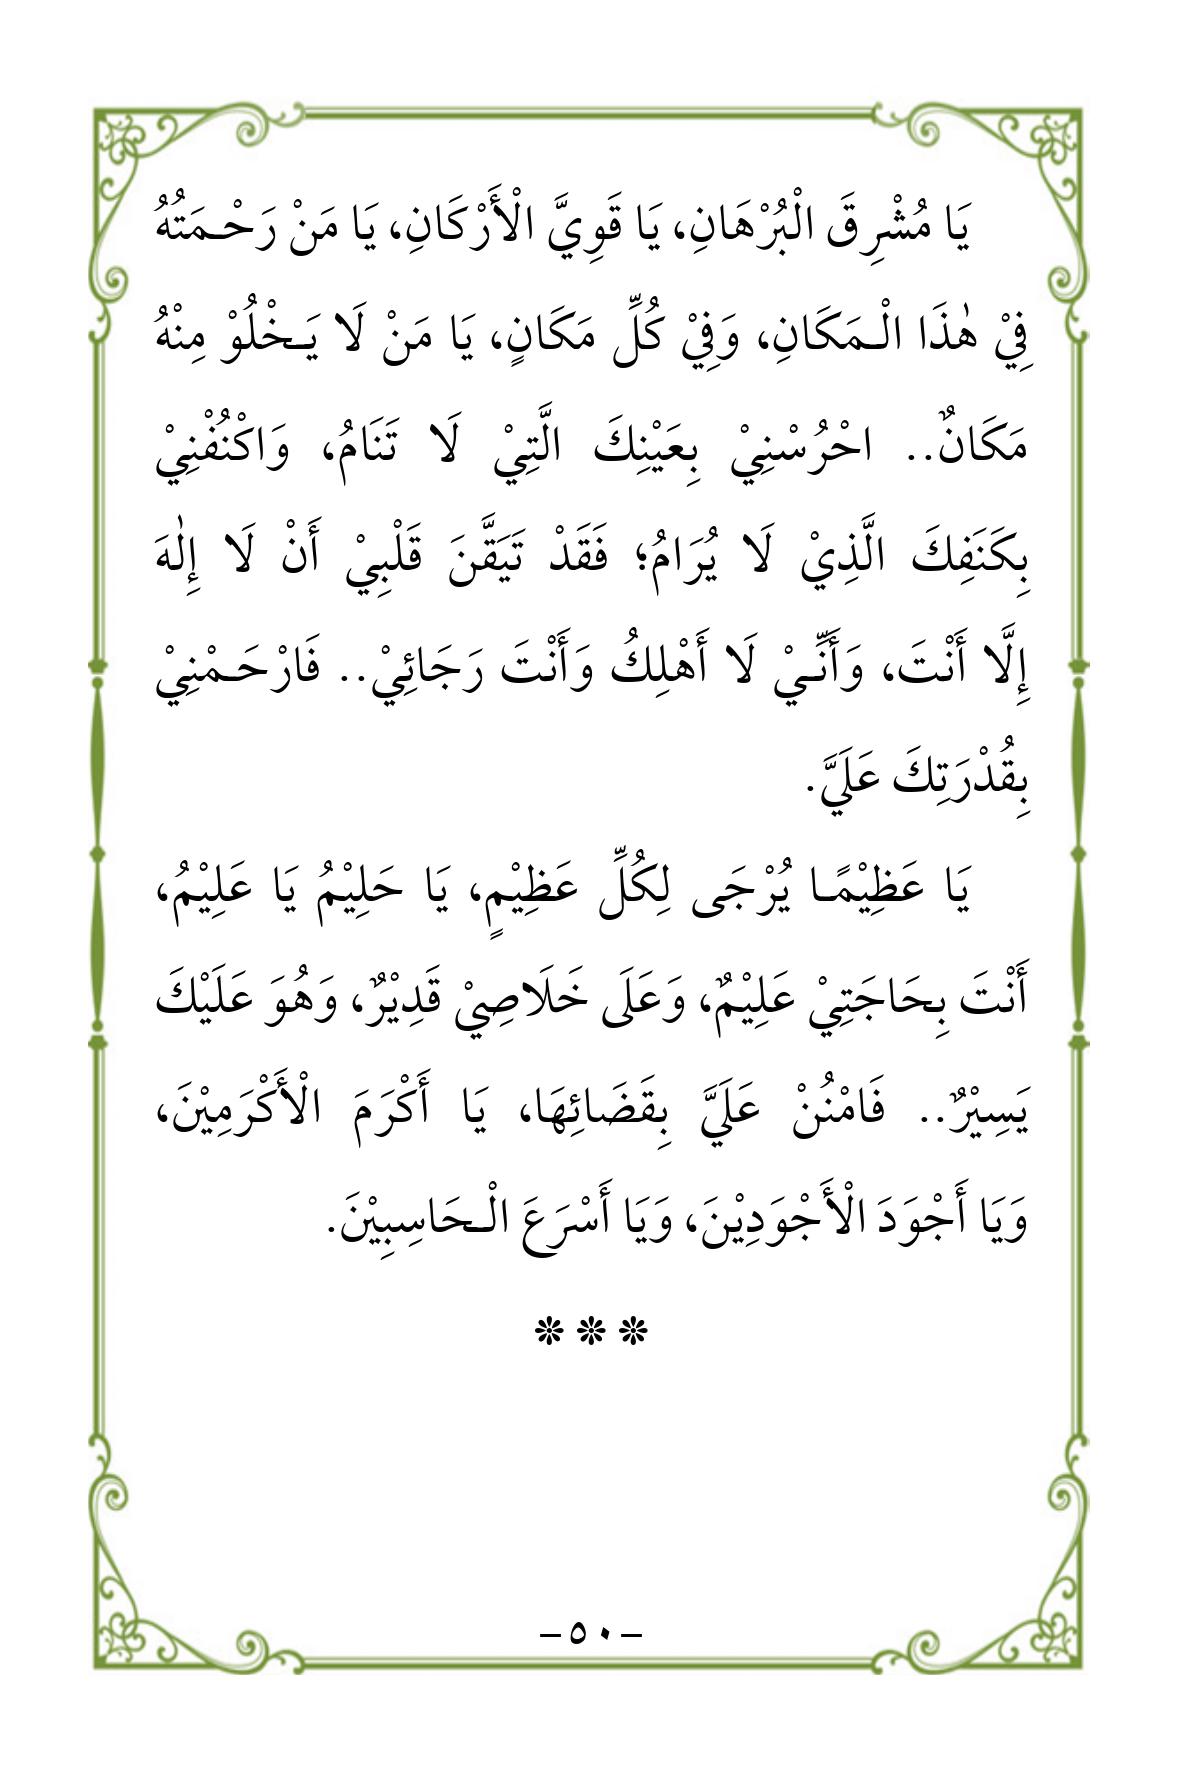 يَا مُشْرِقَ الْبُرْهَانِ، يَا قَوِيَّ الْأَرْكَانِ، يَا مَنْ رَحْـمَتُهُ
فِيْ هٰذَا الْـمَكَانِ، وَفِيْ كُلِّ مَكَانٍ، يَا مَنْ لَا يَـخْلُوْ مِنْهُ
مَكَانٌ.. احْرُسْنِيْ بِعَيْنِكَ الَّتِيْ لَا تَنَامُ، وَاكْنُفْنِيْ
بِكَنَفِكَ الَّذِيْ لَا يُرَامُ؛ فَقَدْ تَيَقَّنَ قَلْبِيْ أَنْ لَا إِلٰهَ
إِلَّا أَنْتَ، وَأَنِّـيْ لَا أَهْلِكُ وَأَنْتَ رَجَائِيْ.. فَارْحَـمْنِيْ
بِقُدْرَتِكَ عَلَيَّ.
يَا عَظِيْمًـا يُرْجَى لِكُلِّ عَظِيْمٍ، يَا حَلِيْمُ يَا عَلِيْمُ،
أَنْتَ بِـحَاجَتِيْ عَلِيْمٌ، وَعَلَى خَلَاصِيْ قَدِيْرٌ، وَهُوَ عَلَيْكَ
يَسِيْرٌ.. فَامْنُنْ عَلَيَّ بِقَضَائِهَا، يَا أَكْرَمَ الْأَكْرَمِيْنَ،
وَيَا أَجْوَدَ الْأَجْوَدِيْنَ، وَيَا أَسْرَعَ الْـحَاسِبِيْنَ.
❊ ❊ ❊
– ٥٠ –